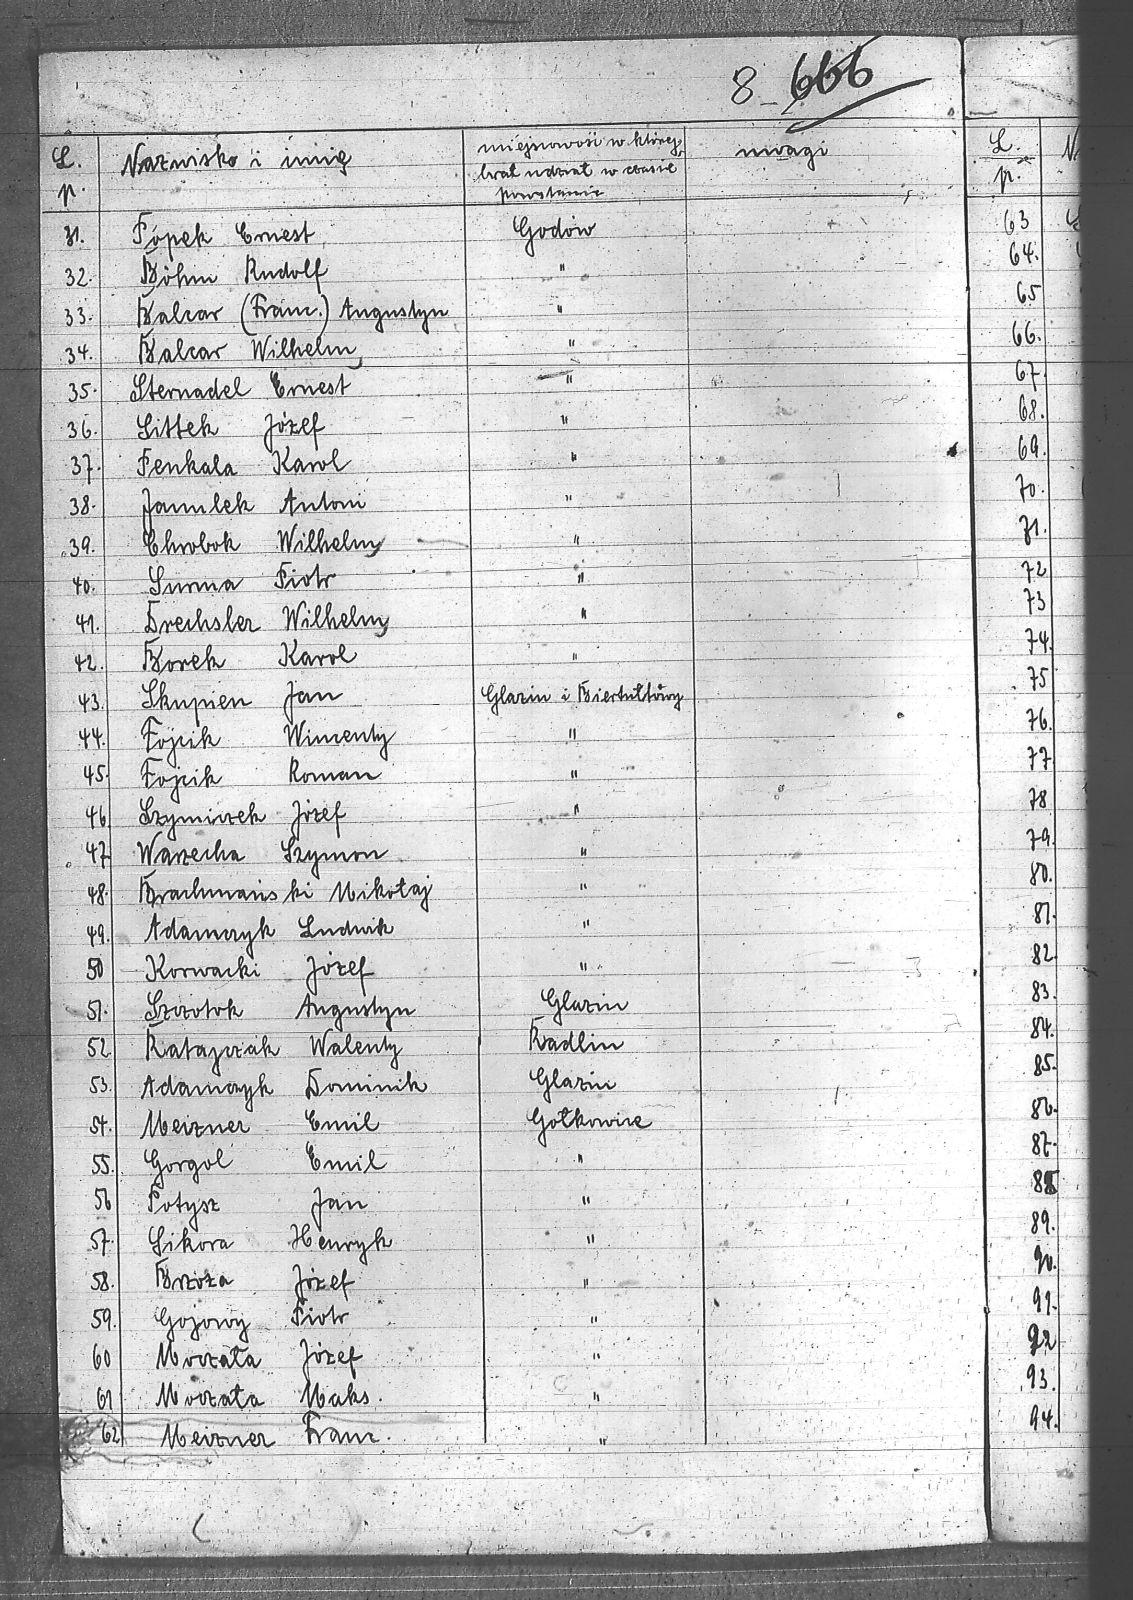 8 666
L. p. Nazwisko i imię miejscowość w której brał udział w czasie powstania uwagi
31. Popek Ernest Godów
32. Böhm Rudolf "
33. Balcar (Franc.) Augustyn "
34. Balcar Wilhelm "
35. Sternadel Ernest "
36. Sittek Józef "
37. Penkala Karol "
38. Janulek Antoni "
39. Chrobok Wilhelm "
40. Surma Piotr "
41. Drechsler Wilhelm "
42. Borek Karol "
43. Skupien Jan Glazin i Biertułtowy
44. Fojcik Wincenty "
45. Fojcik Roman "
46. Szymiczek Józef "
47. Warzecha Szymon "
48. Brachmański Mikołaj "
49. Adamczyk Ludwik "
50 Korwacki Józef "
51. Szczotok Augustyn Glazin
52. Ratajczak Walenty Radlin
53. Adamczyk Dominik Glazin
54. Meizner Emil Gołkowice
55. Gorgol Emil "
56 Potysz Jan "
57. Sikora Henryk "
58. Brzoza Józef "
59. Gojowy Piotr "
60 Moczała Józef "
61 Moczała Maks. "
62 Meizner Franc. "
L. p. N
63
64.
65
66.
67.
68.
69.
70.
71.
72
73
74.
75
76.
77
78
79.
80.
81.
82
83.
84.
85.
86.
87.
88
89.
90.
91.
92
93.
94.